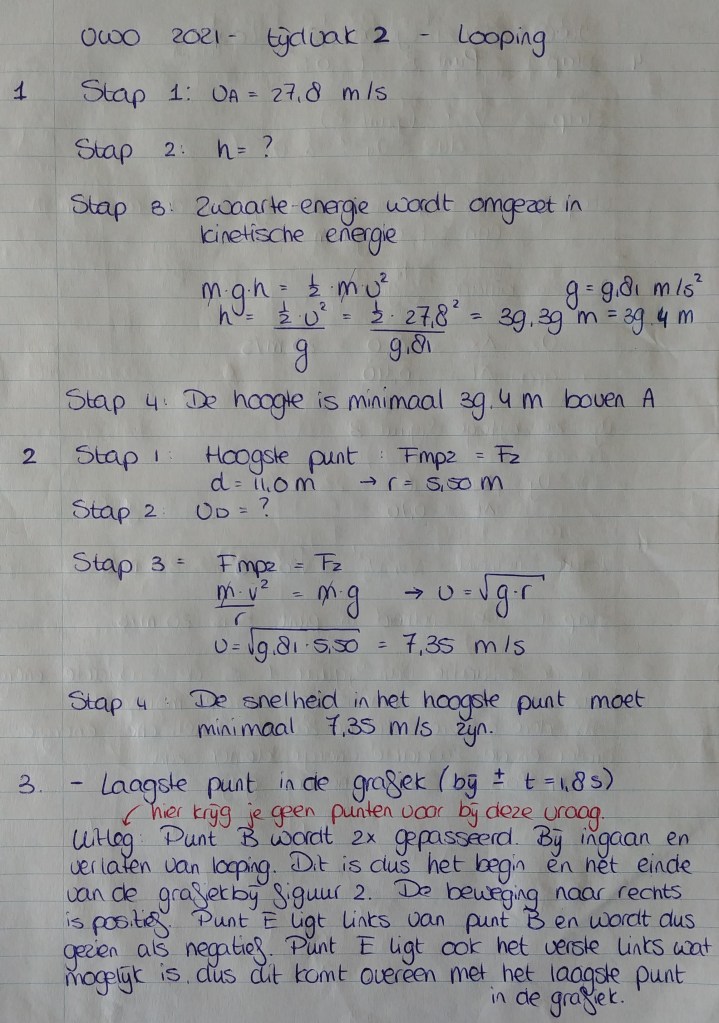 VWO 2021 - tijdvak 2 - Looping
1 Stap 1: vA = 27,8 m/s
Stap 2: h = ?
Stap 3: Zwaarte-energie wordt omgezet in
kinetische energie
m·g·h = ½·m·v² g = 9,81 m/s²
h = ½·v² / g = ½·27,8² / 9,81 = 39,39 m = 39,4 m
Stap 4: De hoogte is minimaal 39,4 m boven A
2 Stap 1: Hoogste punt: Fmpz = Fz
d = 11,0 m → r = 5,50 m
Stap 2: vD = ?
Stap 3 = Fmpz = Fz
m·v² / r = m·g → v = √g·r
v = √9,81·5,50 = 7,35 m/s
Stap 4: De snelheid in het hoogste punt moet
minimaal 7,35 m/s zijn.
3. - Laagste punt in de grafiek (bij ± t = 1,8 s)
↙ hier krijg je geen punten voor bij deze vraag.
Uitleg: Punt B wordt 2x gepasseerd. Bij ingaan en
verlaten van looping. Dit is dus het begin en het einde
van de grafiek bij figuur 2. De beweging naar rechts
is positief. Punt E ligt links van punt B en wordt dus
gezien als negatief. Punt E ligt ook het verste links wat
mogelijk is, dus dit komt overeen met het laagste punt
in de grafiek.